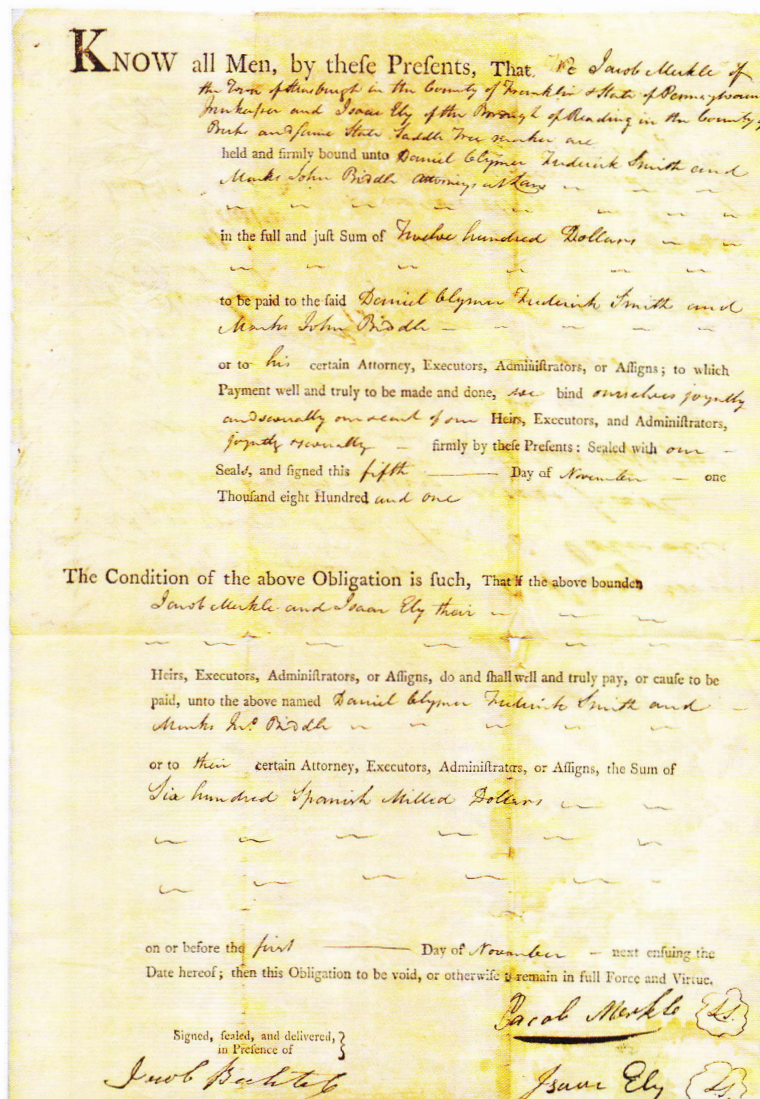 KNOW all Men, by theſe Preſents, That We Jacob Merkle of
the Town of in the County of Franklin & State of Pennsylvania
Innkeeper and Isaac Ely of the Borough of Reading in the County of
Berks and same State Saddle Tree maker are
held and firmly bound unto Daniel Clymer Frederick Smith and
Marks John Biddle attorneys at Law
in the full and juſt Sum of Twelve hundred Dollars
to be paid to the ſaid Daniel Clymer Frederick Smith and
Marks John Biddle
or to his certain Attorney, Executors, Adminiſtrators, or Aſſigns; to which
Payment well and truly to be made and done, we bind ourselves joyntly
and severally our & each of our Heirs, Executors, and Adminiſtrators,
joyntly & severally firmly by theſe Preſents: Sealed with our
Seals, and ſigned this fifth Day of November one
Thouſand eight Hundred and one
The Condition of the above Obligation is ſuch, That if the above bounden
Jacob Merkle and Isaac Ely their
Heirs, Executors, Adminiſtrators, or Aſſigns, do and ſhall well and truly pay, or cauſe to be
paid, unto the above named Daniel Clymer Frederick Smith and
Marks Jno. Biddle
or to their certain Attorney, Executors, Adminiſtrators, or Aſſigns, the Sum of
Six hundred Spanish Milled Dollars
on or before the first Day of November next enſuing the
Date hereof; then this Obligation to be void, or otherwiſe to remain in full Force and Virtue.
Jacob Merkle LS.
Signed, ſealed, and delivered,
in Preſence of
Jacob Isaac Ely LS.